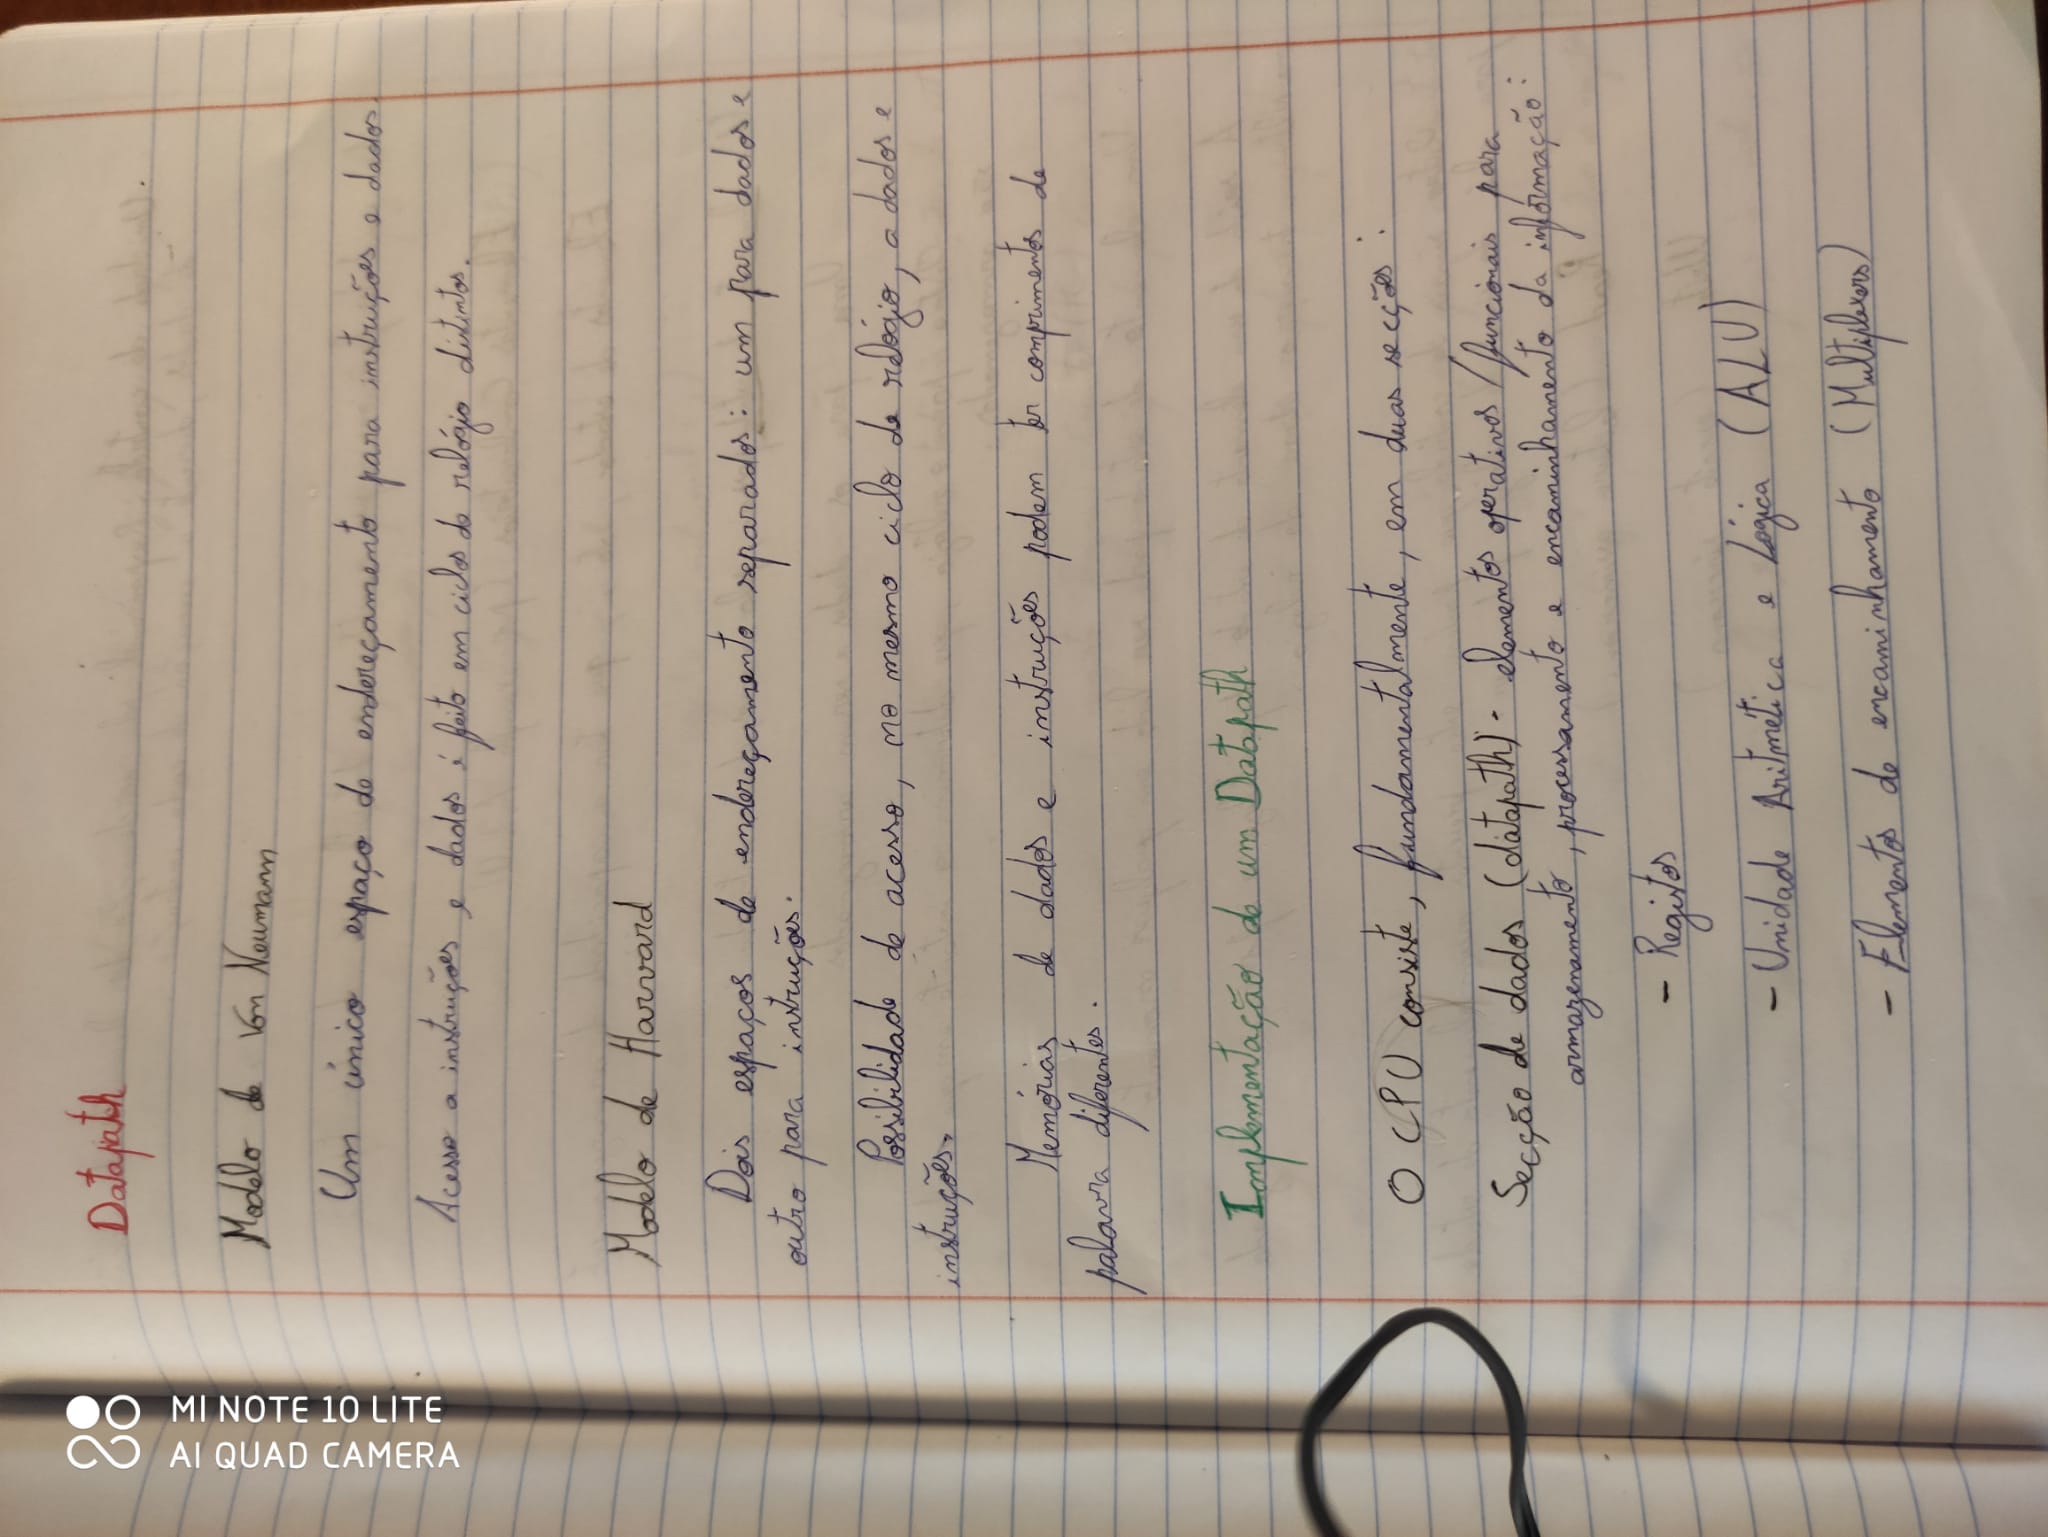 Datapath
Modelo de Von Neumann
Um único espaço de endereçamento para instruções e dados.
Acesso a instruções e dados é feito em ciclos de relógio distintos.
Modelo de Harvard
Dois espaços de endereçamento separados: um para dados e
outro para instruções.
Possibilidade de acesso, no mesmo ciclo de relógio, a dados e
instruções.
Memórias de dados e instruções podem ter comprimentos de
palavra diferentes.
Implementação de um Datapath
O CPU consiste, fundamentalmente, em duas secções:
Secção de dados (datapath) - elementos operativos/funcionais para
armazenamento, processamento e encaminhamento da informação:
- Registos
- Unidade Aritmética e Lógica (ALU)
- Elementos de encaminhamento (Multiplexers)
MI NOTE 10 LITE
AI QUAD CAMERA